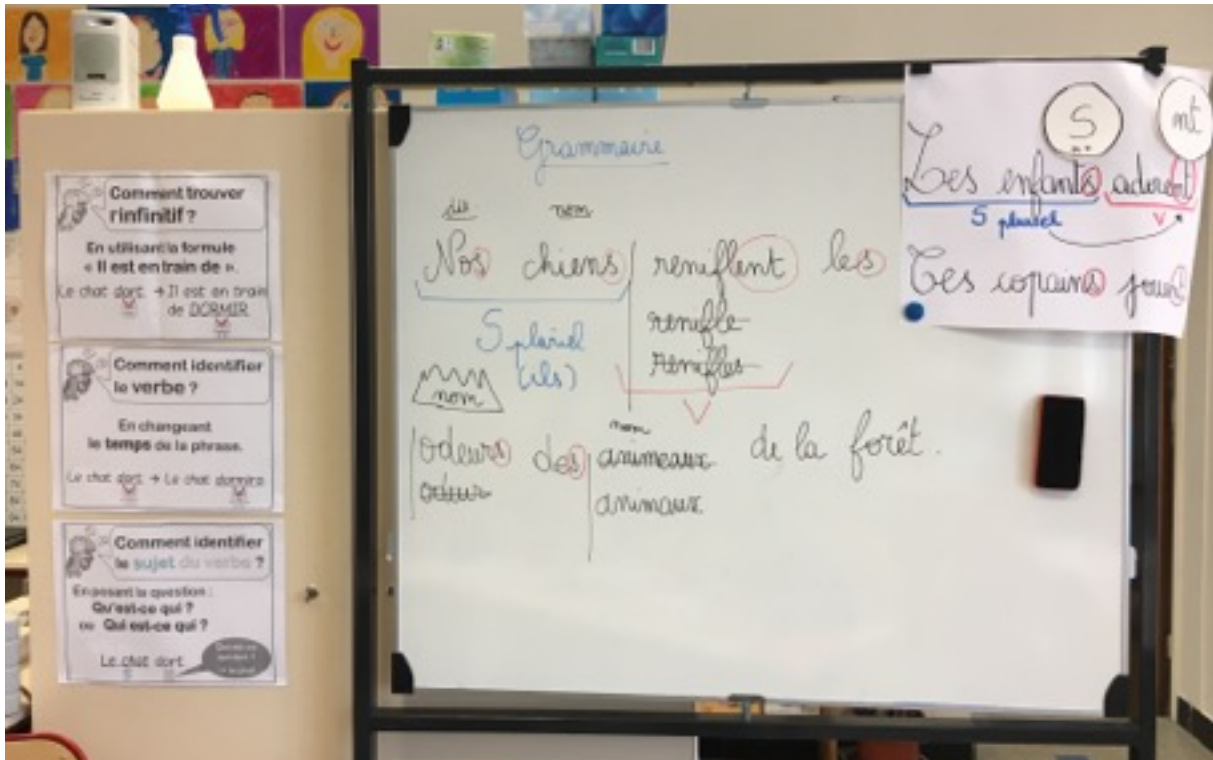 Comment trouver
l'infinitif ?
En utilisant la formule
« Il est en train de ».
Le chat dort. → Il est en train
de DORMIR
Comment identifier
le verbe ?
En changeant
le temps de la phrase.
Le chat dort → Le chat dormira
Comment identifier
le sujet du verbe ?
En posant la question :
Qu'est-ce qui ?
ou Qui est-ce qui ?
Le chat dort
Grammaire
nom
Nos chiens reniflent les
renifle
renifles
S pluriel
(ils)
V
nom
nom
odeurs des animeaux de la forêt.
odeur animaux
S nt
Les enfants adorent
S pluriel V
Les copains jouent